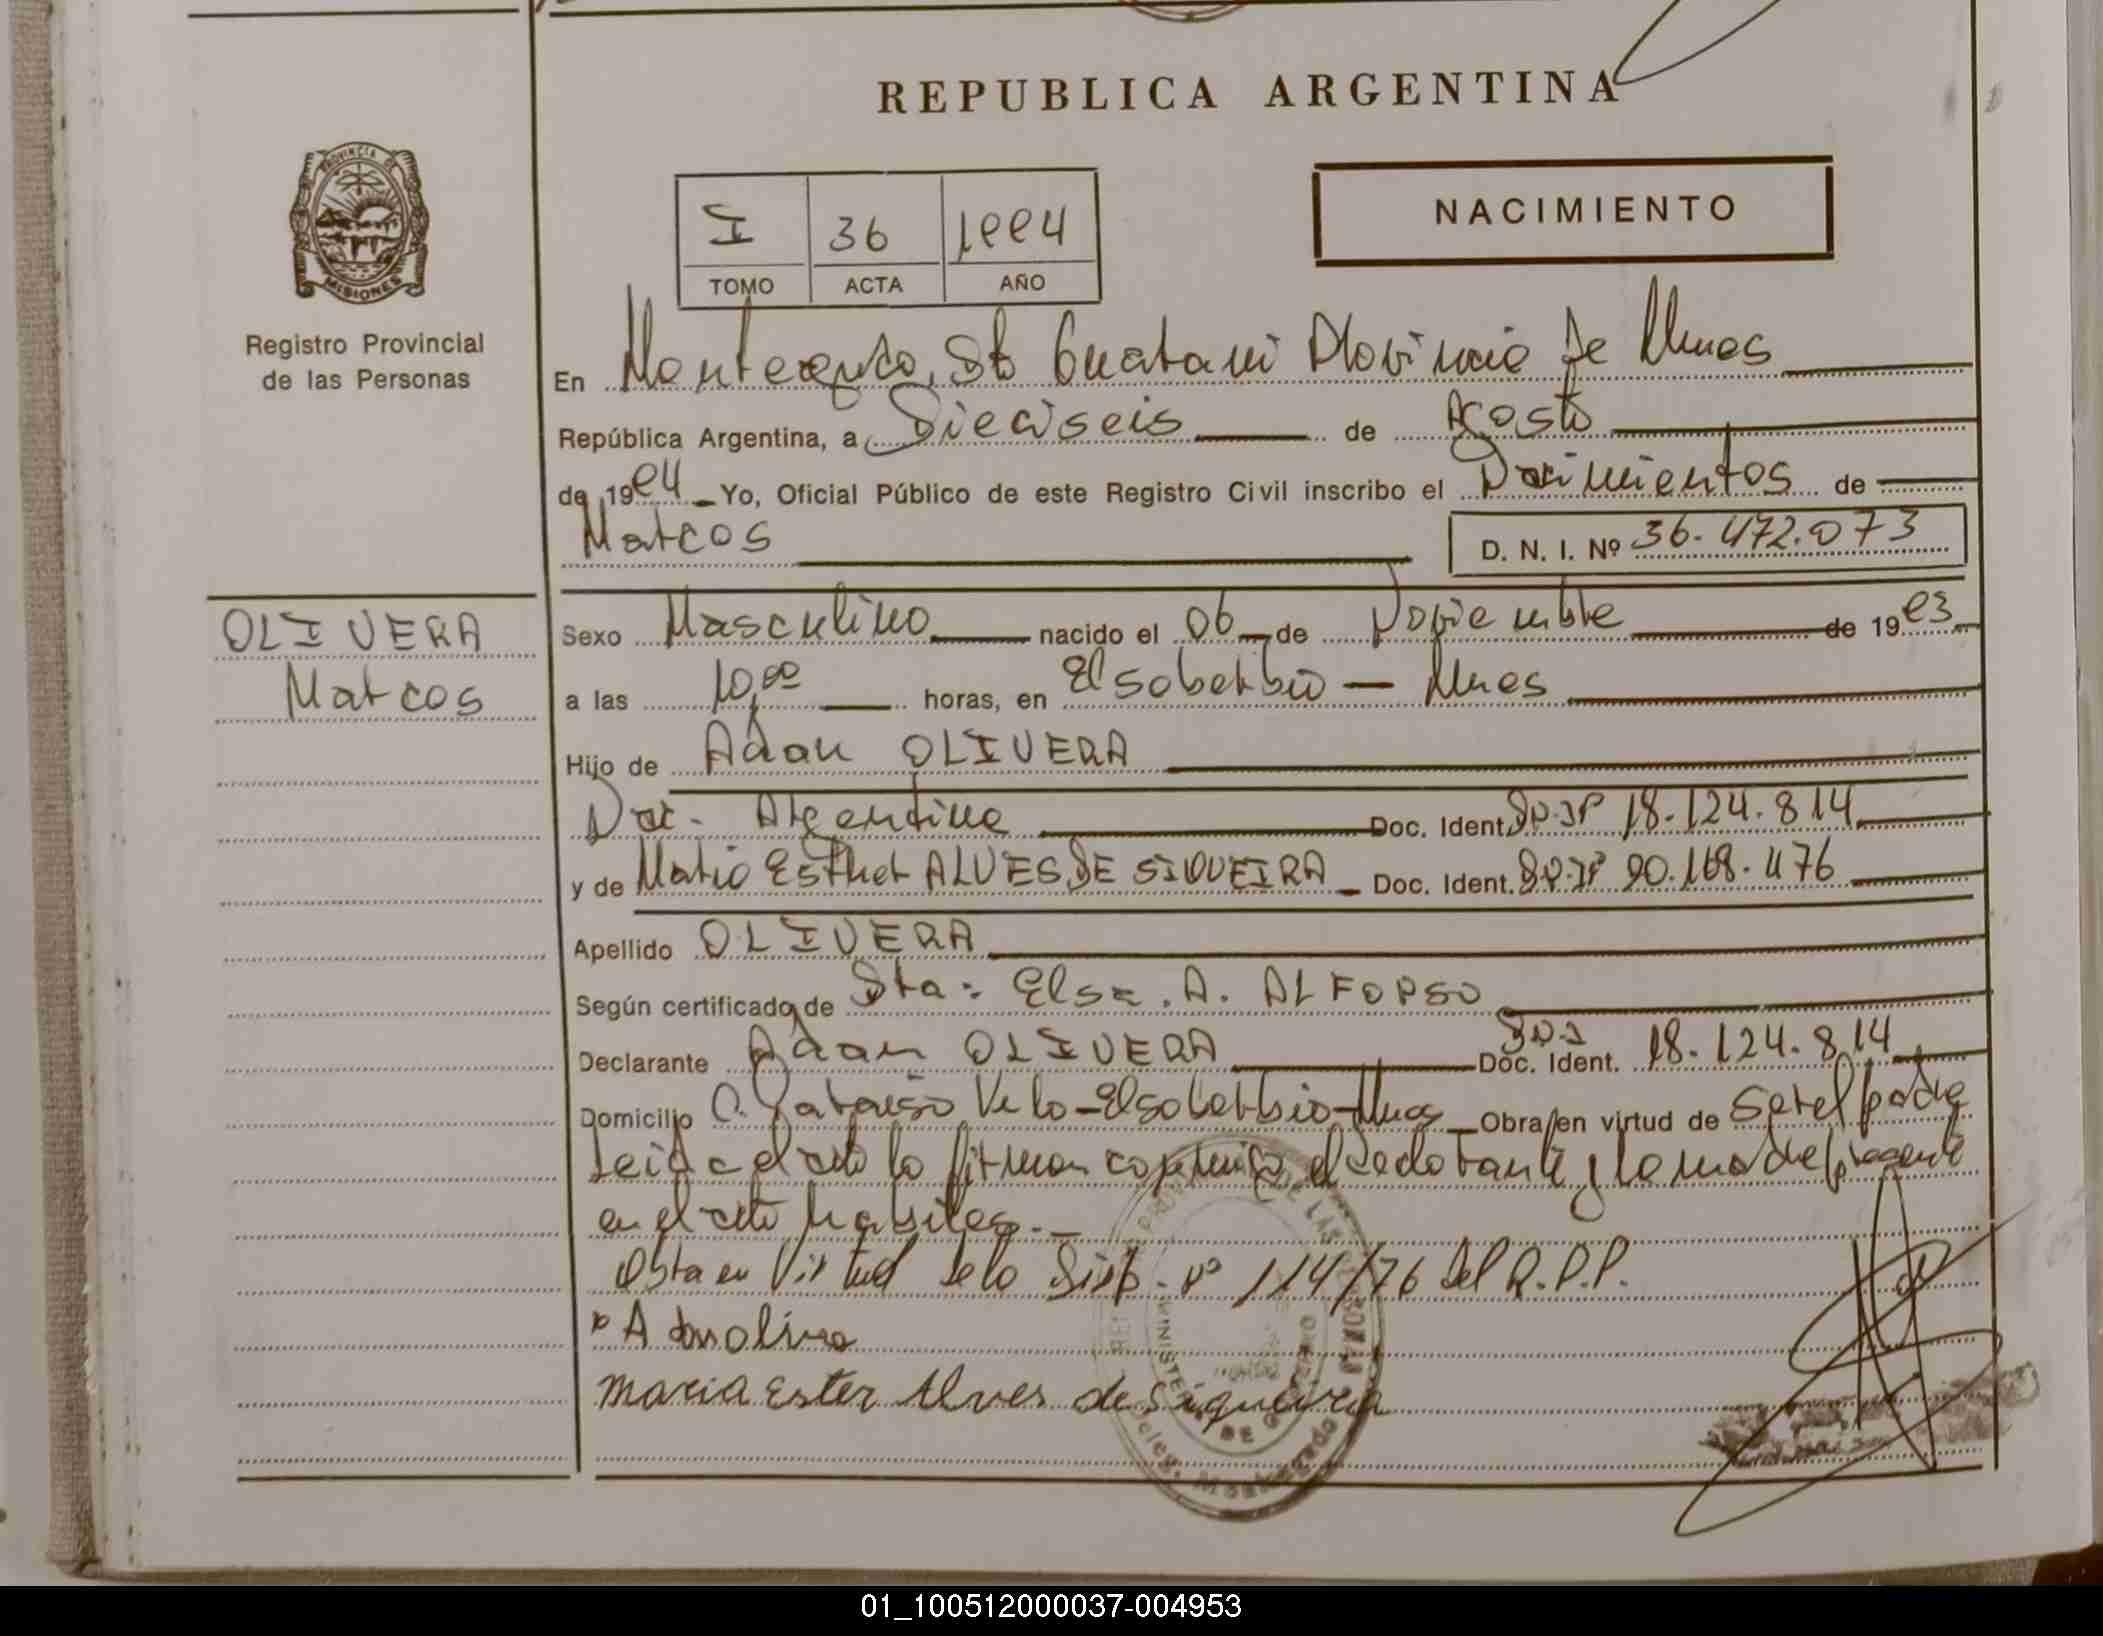 REPUBLICA ARGENTINA
PROVINCIA DE
MISIONES
Registro Provincial
de las Personas
I 36 1984
TOMO ACTA AÑO
NACIMIENTO
En Monteagudo, Dto Guarani Provincia de Mnes
República Argentina, a Dieciseis de Agosto
de 1984 Yo, Oficial Público de este Registro Civil inscribo el Nacimientos de
Marcos
D. N. I. Nº 36.472.073
OLIVERA
Marcos
Sexo Masculino nacido el 06 de Noviembre de 1983
a las 10,00 horas, en El soberbio - Mnes
Hijo de Adan OLIVERA
Nac. Argentina Doc. Ident. 18.124.814
y de Maria Esther ALVES DE SIQUEIRA Doc. Ident. 90.168.476
Apellido OLIVERA
Según certificado de Sra. Elsa. A. ALFONSO
Declarante Adan OLIVERA Doc. Ident. D.N.I 18.124.814
Domicilio C. Paraiso Velo - El soberbio - Mnes Obra en virtud de Ser el padre
Leida el acta la firman conmigo el declarante y la madre presente
en el acto habiles.-
Obra en Virtud de la Disp. Nº 114/76 del R.P.P.
Maria Ester Alves de Siqueira
DE LAS PERSONAS
MINISTERIO DE GOBIERNO
Deleg. Monteagudo
01_100512000037-004953